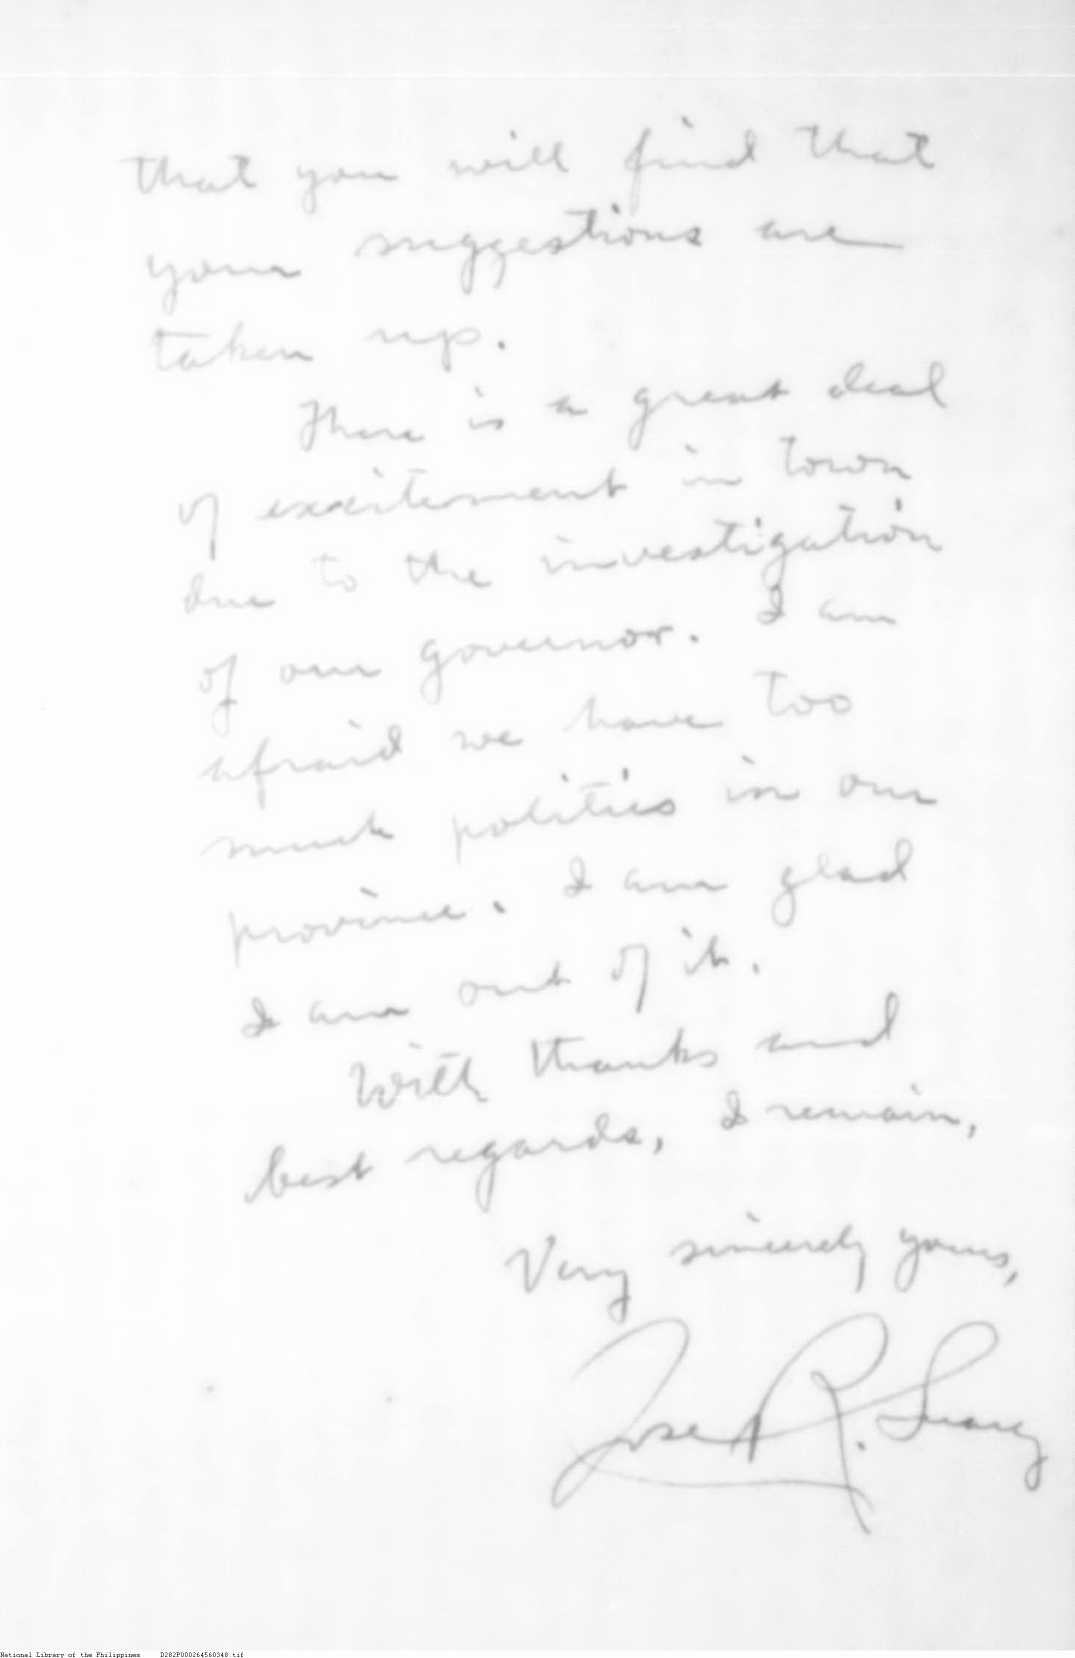 that you will find that
your suggestions are
taken up.
There is a great deal
of excitement in town
due to the investigation
of our governor. I am
afraid we have too
much politics in our
province. I am glad
I am out of it.
With thanks and
best regards, I remain,
Very sincerely yours,
Jose R. Suarez
National Library of the Philippines D282P000264560348.tif